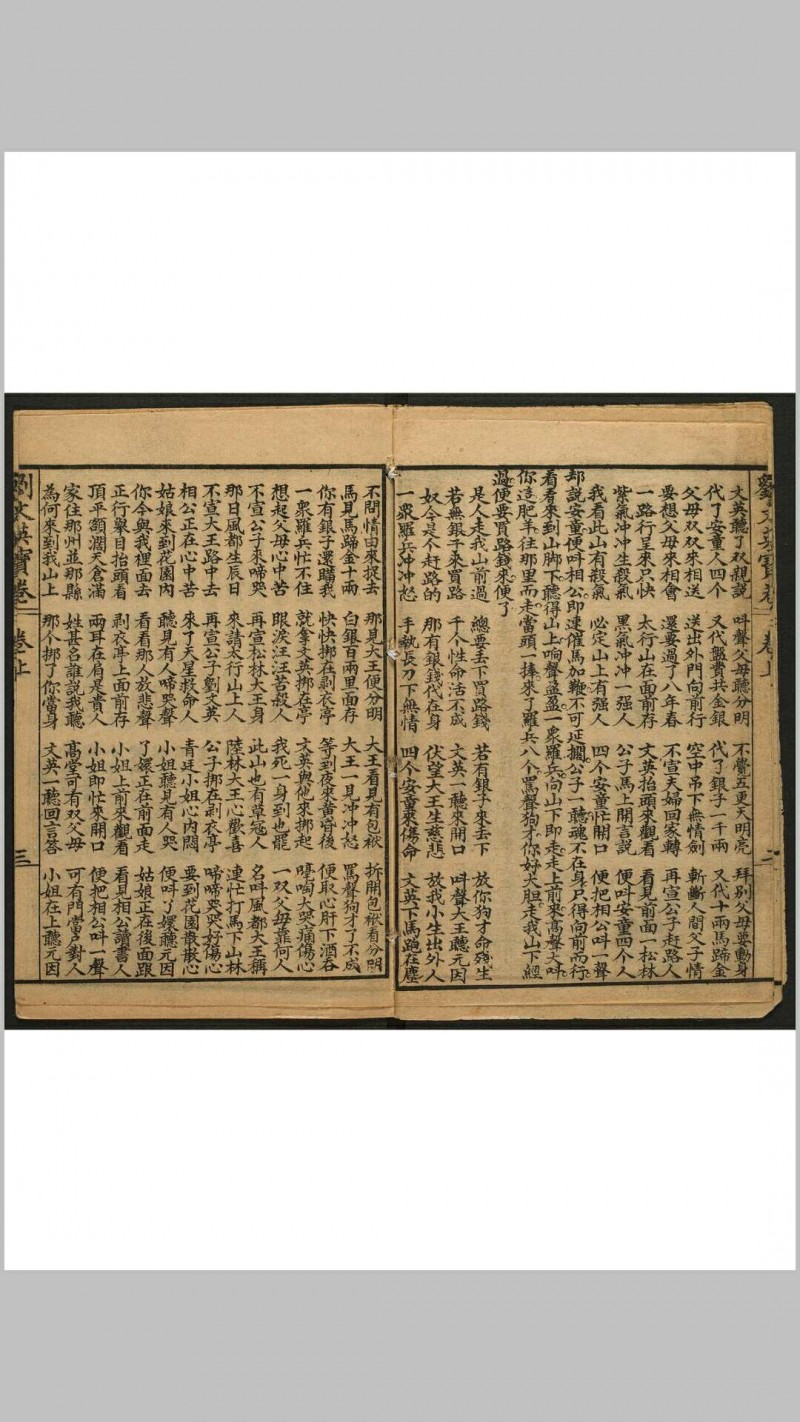 劉文英寶卷 卷上 二
文英聽了双親說 呌聲父毋聽分明 不覺五更天明亮 拜别父毋要動身
代了安童人四个 又代盤費共金銀 代了銀子一千兩 又代十兩馬蹄金
父毋双双來相送 送出外門向前行 空中吊下無情劍 斬斷人間父子情
要想父毋來相會 還要過了八年春 不宣夫婦回家轉 再宣公子赶路人
一路行呈來只快 太行山在面前存 文英抬頭來觀看 看見前面一松林
紫氣冲冲生殺氣 黑氣冲冲一强人 公子馬上開言說 便呌安童四个人
我看此山有殺氣 必定山上有强人 四个安童忙開口 便把相公呌一聲
却說安童便呌相公即速催馬加鞭不可延擱公子一聽魂不在身只得向前而行
看看來到山脚下聽得山上响聲盈盈一衆羅兵向山下即走走上前來高聲大呌
你這肥羊往那里而走當頭一捧來了羅兵八个罵聲狗才你好大胆走我山下經
過便要買路錢來便了
是人走我山前過 總要丢下買路錢 若有銀子來丢下 放你狗才命殘生
若無銀子來買路 千个性命活不成 文英一聽來開口 呌聲大王聽元因
奴今是个赶路的 那有銀錢代在身 伏望大王生慈悲 放我小生出外人
一衆羅兵冲冲怒 手執長刀下無情 四个安童來傷命 文英下馬跪在塵
不問情由來捉去 那見大王便分明 大王看見有包袱 拆開包袱看分明
馬見馬蹄金十兩 白銀百兩里面存 大王一見冲冲怒 罵聲狗才了不成
你有銀子還瞞我 快快挷在剥衣亭 等到夜來黄昏後 便取心肝下酒吞
一衆羅兵忙不住 就拿文英挷在亭 文英與他來挷起 嚎啕大哭痛傷心
想起父毋心中苦 眼淚汪汪苦殺人 我死一身到也罷 一双父毋靠何人
不宣公子來啼哭 再宣松林大王身 此山也有草冦人 名呌風都大王稱
那日風都生辰日 來請太行山上人 陸林大王心歡喜 連忙打馬下山林
不宣大王路中去 再宣公子劉文英 公子挷在剥衣亭 啼啼哭哭好傷心
相公正在心中苦 來了天星救命人 青廷小姐心内悶 要到花園散散心
姑娘來到花園内 聽見有人啼哭聲 小姐聽見有人哭 便呌了嬛聽元因
你今與我裡面去 看看那人放悲聲 了嬛正在前面走 姑娘正在後面跟
正行舉目抬頭看 剥衣亭上面前存 小姐上前來觀看 看見相公讀書人
頂平額濶天倉滿 兩耳在肩是貴人 小姐即忙來開口 便把相公呌一聲
家住那州並那縣 姓甚名誰說我聽 高堂可有双父毋 可有門當户對人
為何來到我山上 那个挷了你當身 文英一聽回言答 小姐在上聽元因
劉文英寶卷 卷上 三